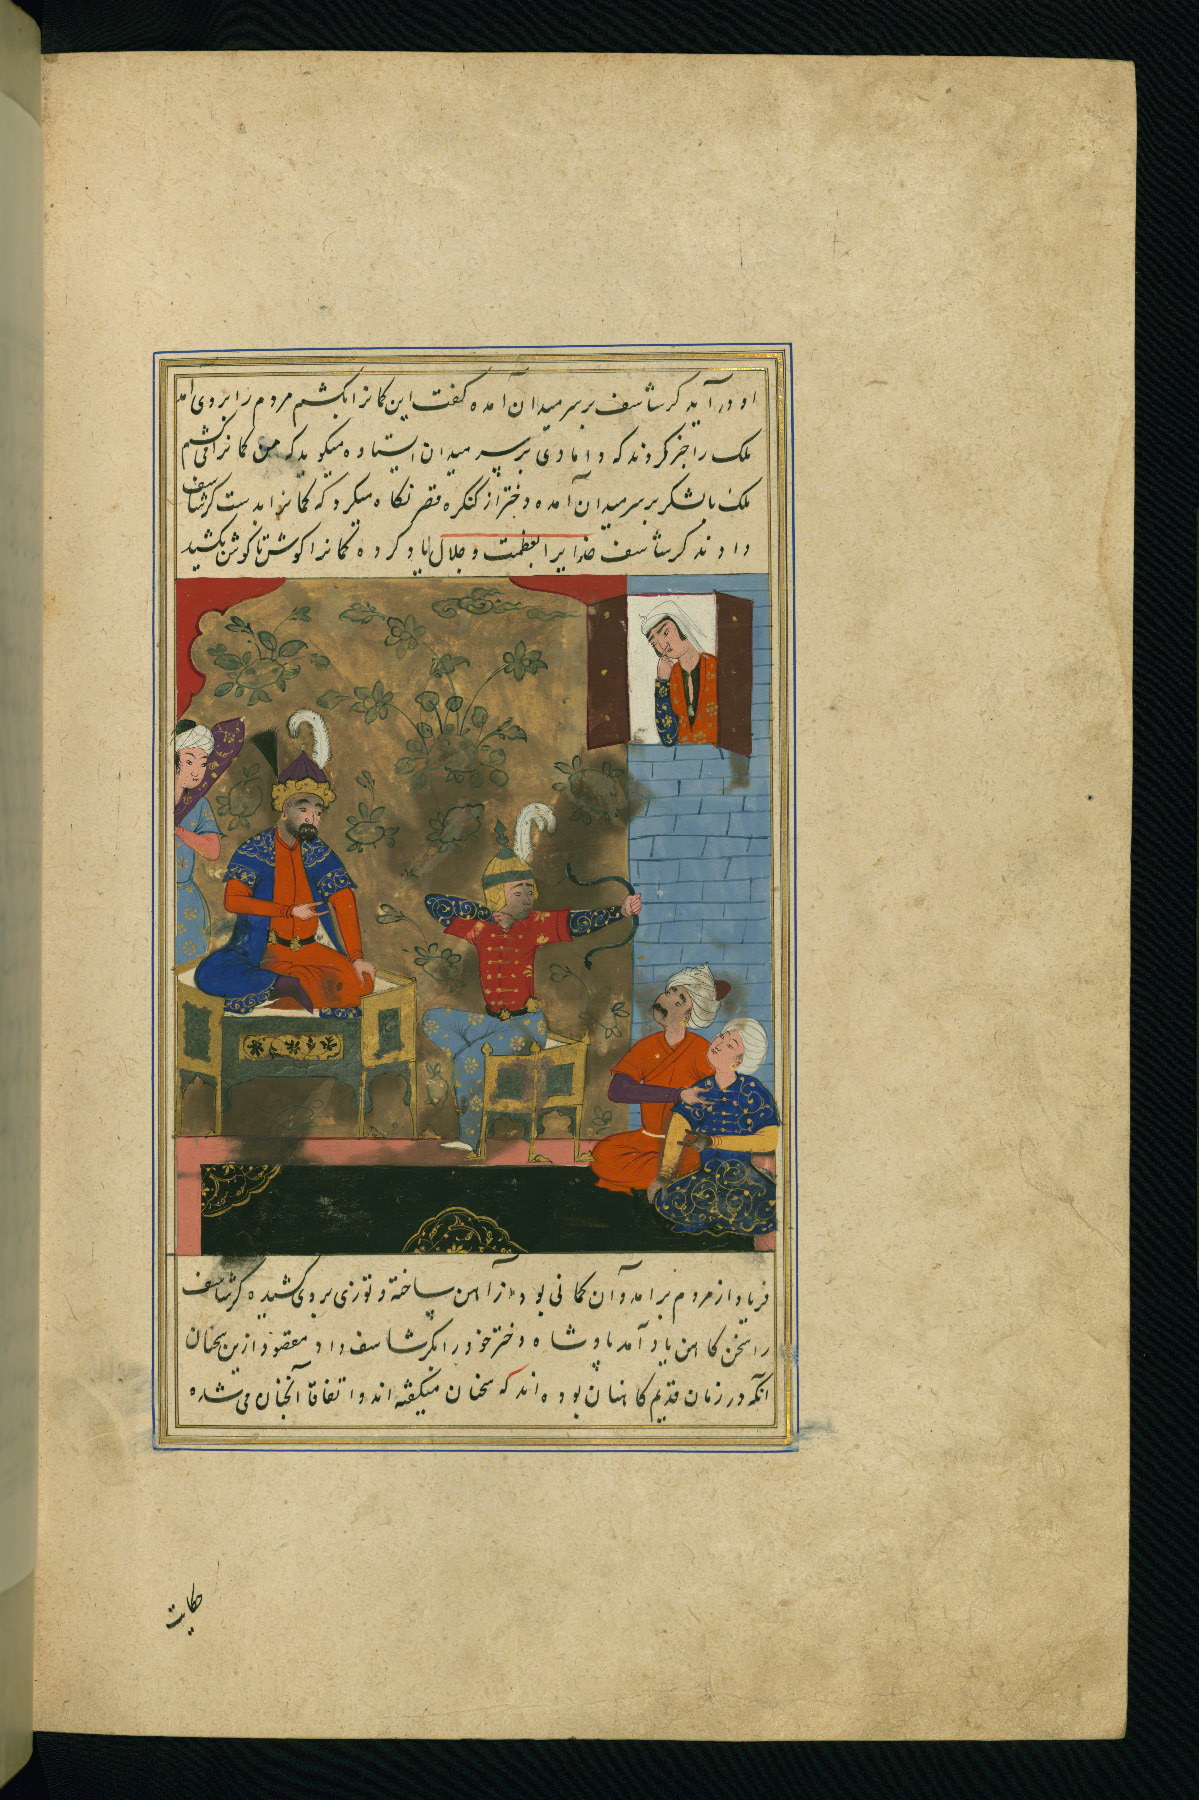 او درآید کرشاسف بر سر میدان آمده گفت این کمانرا بکشم مردم را بروی آمد
ملک را خبر کردند که دامادی بر سر میدان ایستاده میگوید که من کمانرا می کشم
ملک بالشکر بر سر میدان آمده دختر از کنگره قصر نگاه میکرد که کمانرا بدست کرشاسف
دادند کرشاسف خدایرا بعظمت و جلال یاد کرده کمانرا گوش تا گوش بکشید
فریاد از مردم برآمد و آن کمانی بود از آهن ساخته و توزی بر وی کشیده کرشاسف
را سخن کاهن یاد آمد پادشاه دختر خود را بکرشاسف داد مقصود ازین سخنان
آنکه در زمان قدیم کاهنان بوده اند که سخنان میگفته اند و اتفاقا آنچنان می شده
حکایت